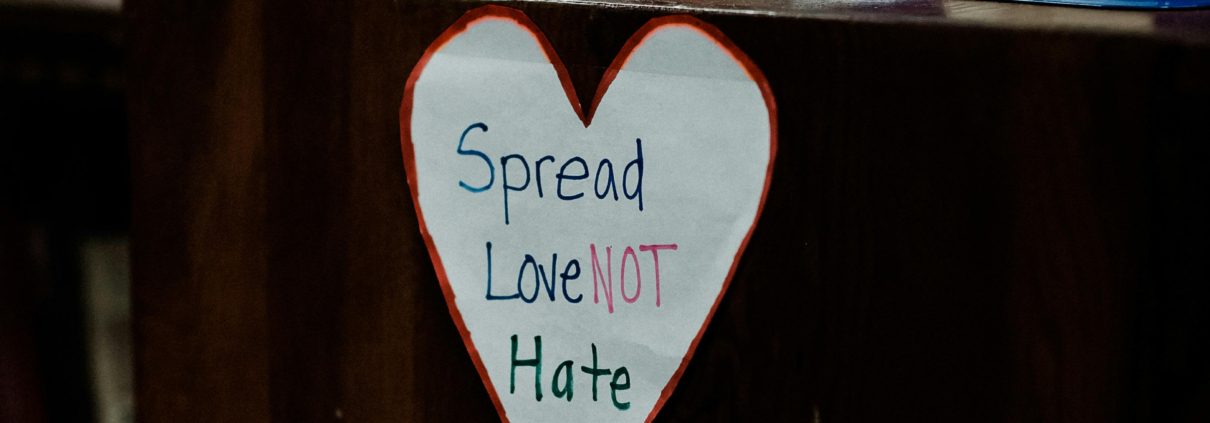 Spread
Love NOT
Hate